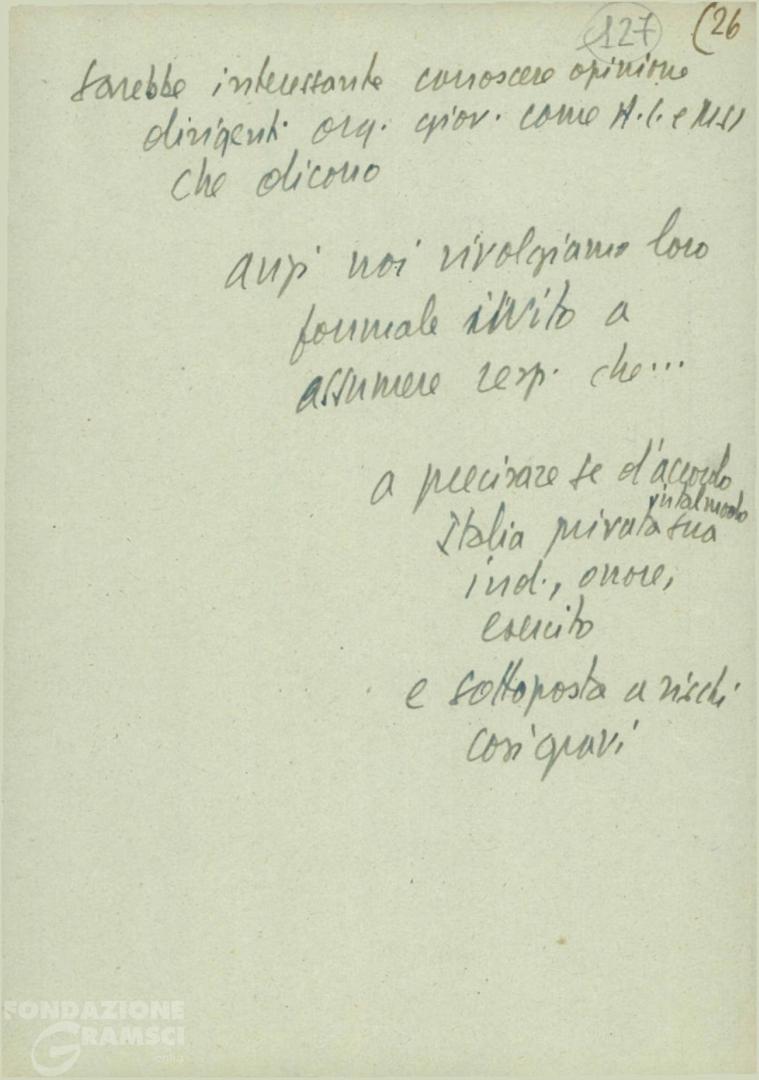 127 (26
Sarebbe interessante conoscere opinione
dirigenti org. giov. come A.C. e MSI
che dicono
anzi noi rivolgiamo loro
formale invito a
assumere resp. che...
a precisare se d'accordo
in tal modo
Italia privata sua
ind., onore,
esercito
e sottoposta a rischi
così gravi
FONDAZIONE
GRAMSCI